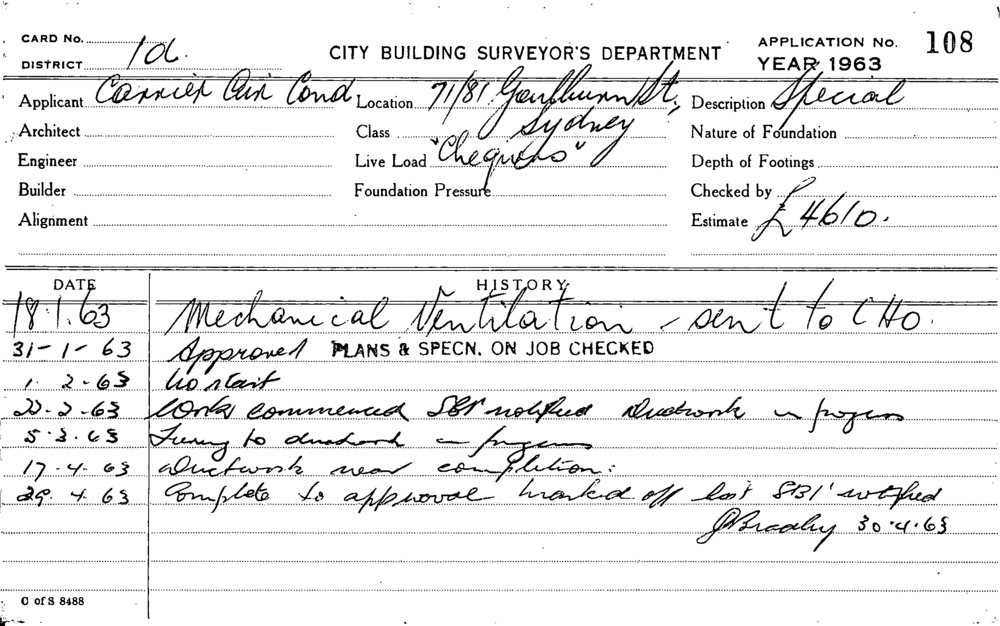 CARD No.
DISTRICT 1d.
CITY BUILDING SURVEYOR'S DEPARTMENT
APPLICATION No. 108
YEAR 1963
Applicant Carrier Air Cond Location 71/81 Goulburn St, Description Special
Architect Class Sydney Nature of Foundation
Engineer Live Load "Chequers" Depth of Footings
Builder Foundation Pressure Checked by
Alignment Estimate £4610.
DATE HISTORY
18.1.63 Mechanical Ventilation - sent to CHO.
31-1-63 Approved PLANS & SPECN. ON JOB CHECKED
1.2.63 No start
22.2.63 Work commenced SBI notified Ductwork in progress
5.3.63 to ductwork in progress
17.4.63 Ductwork near completion:
29.4.63 Complete to approval marked off list SBI notified
30.4.63
C of S 8488